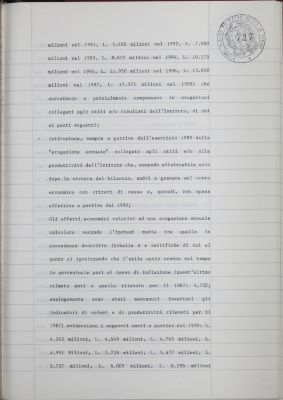 727
milioni nel 1991, L. 5.400 milioni nel 1992, L. 7.000
milioni nel 1993, L. 8.615 milioni nel 1994, L. 10.275
milioni nel 1995, L. 11.950 milioni nel 1996, L. 13.650
milioni nel 1997, L. 15.375 milioni nel 1998) che
andrebbero a parzialmente compensare le erogazioni
collegati agli utili e/o risultati dell'Istituto, di cui
ai punti seguenti;
- istituzione, sempre a partire dall'esercizio 1989 della
"erogazione annuale" collegata agli utili e/o alla
produttività dell'Istituto che, essendo effettuabile solo
dopo la chiusura del bilancio, andrà a gravare sul conto
economico con criteri di cassa e, quindi, con opera
effettiva a partire dal 1990;
Gli effetti economici relativi ad una erogazione annuale
calcolata secondo l'ipotesi media tra quelle in
precedenza descritte (tabella e rettifiche di cui al
punto c) ipotizzando che l'utile netto cresca nel tempo
in percentuale pari al tasso di inflazione (quest'ultimo
stimato pari a quello rilevato per il 1987: 4,75%;
analogamente sono stati mantenuti invariati gli
indicatori di valori e di produttività rilevati per il
1987), evidenziano i seguenti costi a partire dal 1990: L.
4.343 milioni, L. 4.549 milioni, L. 4.765 milioni, L.
4.991 milioni, L. 5.228 milioni, L. 5.477 milioni, L.
5.737 milioni, L. 6.009 milioni, L. 6.295 milioni